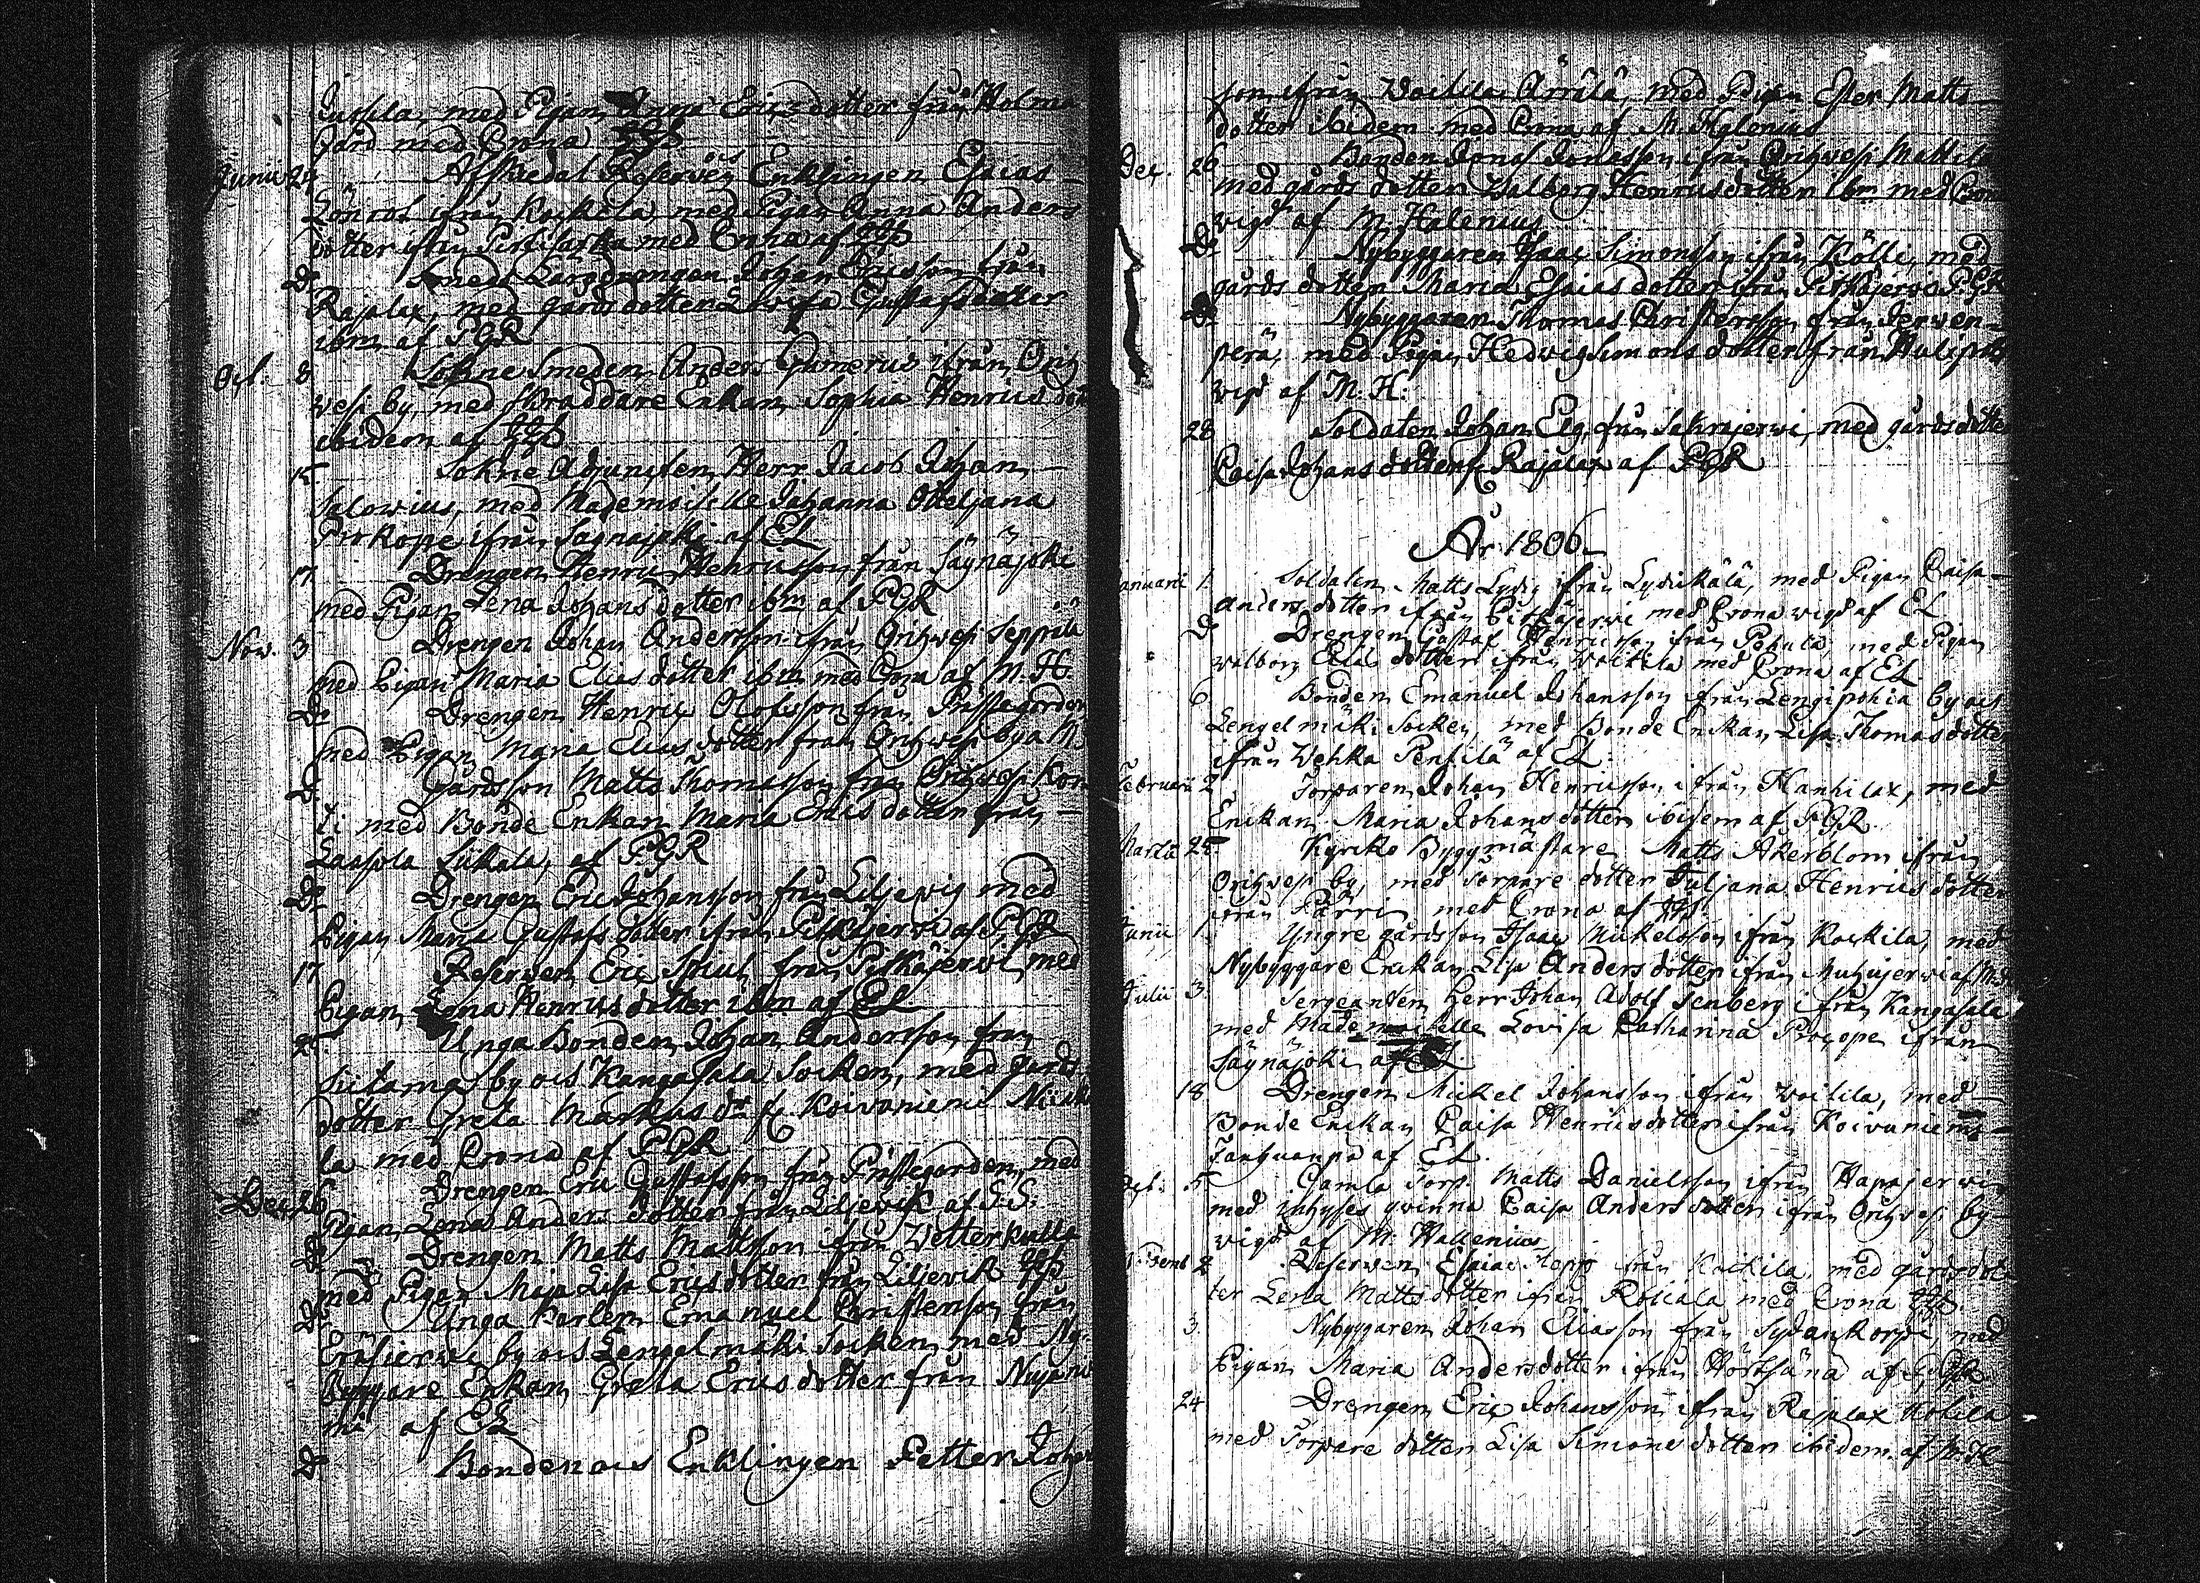 Jussila, med Pigan Anna Ericsdotter från Holma
Gård med Crona
Junii 24 Afskedat Reserven Enklingen Esaias
Lönrot ifrån Kockila med Pigan Anna Anders
dotter ifrån med af
Do Johan Ericsson från
Rajalax, med gårds dotter Lovisa Gustafsdotter
ibm af PGR
Oct. 8 Sokne Smeden Anders Gumerus ifrån Orih
vesi by, med Skräddare Enkan Sophia Henrics dott
ibidem af
15. Sokne Adjuncten, Herr Jacob Johan
Salovius, med Mademoiselle Johanna Otteljana
Prokope ifrån Säynäjoki af EL
17. Drengen Henric Henricsson från Säynäjoki
med Pigan Lena Johans dotter ibm af PGR
Nov. 3 Drengen Johan Andersson ifrån Orihvesi Seppälä
med Pigan Maria Elias dotter ibm med Crona af M. H.
Do Drengen Henric Olofsson från Prästegården
med Pigan Maria Elias dotter från Orihvesi by a M.
D. Gårdsson Matts Thomasson från Orihvesi Kon
ti med Bonde Enkan Maria Erics dotter från
Lassola Sukala, af PGR
Do Drengen Eric Johansson från Liljevig med
Pigan Maria Gustafs dotter ifrån Pitkäjerwi af PGR
17 Reserven Eric från Pitkäjerwi med
Pigan Lena Henrics dotter ibm af EL
Unga Bonden Johan Andersson från
by och Kangasala Socken, med gårds
dotter Greta Markus dr f Koivuniemi
la med Crona af PGR
Dec 26 Drengen Eric Gustafsson från Prästegården med
Pigan Lena Anders dotter från Liljevik af
D. Drengen Matts Mattsson ifrån Vetterkulla
med Pigan Maja Lisa Erics dotter från Liljevik
Do Unga Karlen Emanuel Christersson från
Eräjerwi by och Lengelmäki Socken med Ny-
byggare Enkan Greta Erics dotter från
mi af EL
Do Bonden och Enklingen Petter Johan
son ifrån Voitila Ärrälä, med Pigan Ester Matts
dotter ibidem med Crona af M. Halenius
Dec. 26 Bonden Jonas Jonasson ifrån Orihvesi Mattila
med gårds dotter Valborg Henricsdotter ibm med Cron
vigd af M. Halenius
Do Nybyggaren Isaac Simonsson ifrån Kölli, med
gårds dotter Maria Esaias dotter ifrån Pitkäjerwi PGR
Do Nybyggaren Thomas Christersson från Jerwen-
perä, med Pigan Hedwig Simons dotter från
vigd af M. H.
28 Soldaten Johan Elg, från med gårds dotter
Caisa Johans dotter f Rajalax af PGR
År 1806
Januarii 1. Soldaten Matts Lydig ifrån Lydikälä, med Pigan Caisa
Anders dotter ifrån Pitkäjerwi med Crona vigd af EL
D Drengen Gustaf Henricsson ifrån Pehula, med Pigan
Valborg Elias dotter ifrån Voitila med Crona af EL
6 Bonden Emanuel Johansson ifrån Lengipohia by och
Lengelmäki Socken, med Bonde Enkan Lisa Thomas dotter
ifrån Vehka Penttilä af EL
Februarii 2 Torparen Johan Henricsson ifrån Hanhilax, med
Enkan Maria Johans dotter ibidem af PGR
Martii 25 Kyrko Byggmästare Matts Åkerblom ifrån
Orihvesi by, med torpare dotter Juljana Henrics dotter
ifrån Pärri med Crona af
Junii 1 Yngre gårdsson Isaac Mickelsson ifrån Kockila, med
Nybyggare Enkan Lisa Anders dotter ifrån af M.H
Julii 3. Sergeanten Herr Johan Adolf Tenberg ifrån Kangasala
med Mademoiselle Lovisa Catharina Procope ifrån
Säynäjoki af EL
18 Drengen Mickel Johansson ifrån Voitila, med
Bonde Enkan Caisa Henrics dotter ifrån Koivuniemi
af EL.
Oct. 5 Gamla Torp. Matts Danielsson ifrån Hapajerwi
med inhyses qvinna Caisa Anders dotter ifrån Orihvesi by
vigd af M. Hallenius
2 Reserven Esaias Hopp från Kockila, med gårds dot
ter Lena Matts dotter ifrån Rokala med Crona
3. Nybyggaren Johan Eliasson från Sydänkorpi, med
Pigan Maria Andersdotter ifrån af
24 Drengen Eric Johansson ifrån Rajalax
med Torpare dotter Lisa Simons dotter ibidem. af M. H